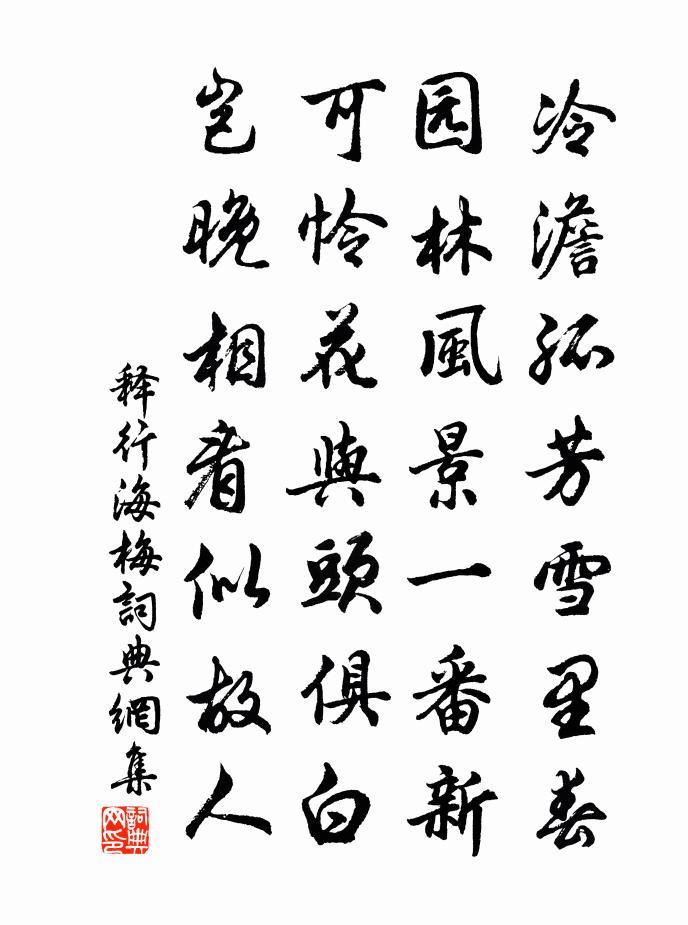 冷澹孤芳雪里春
园林風景一番新
可怜花與頭俱白
岂晚相看似故人
释行海梅詞典網集
詞典网印